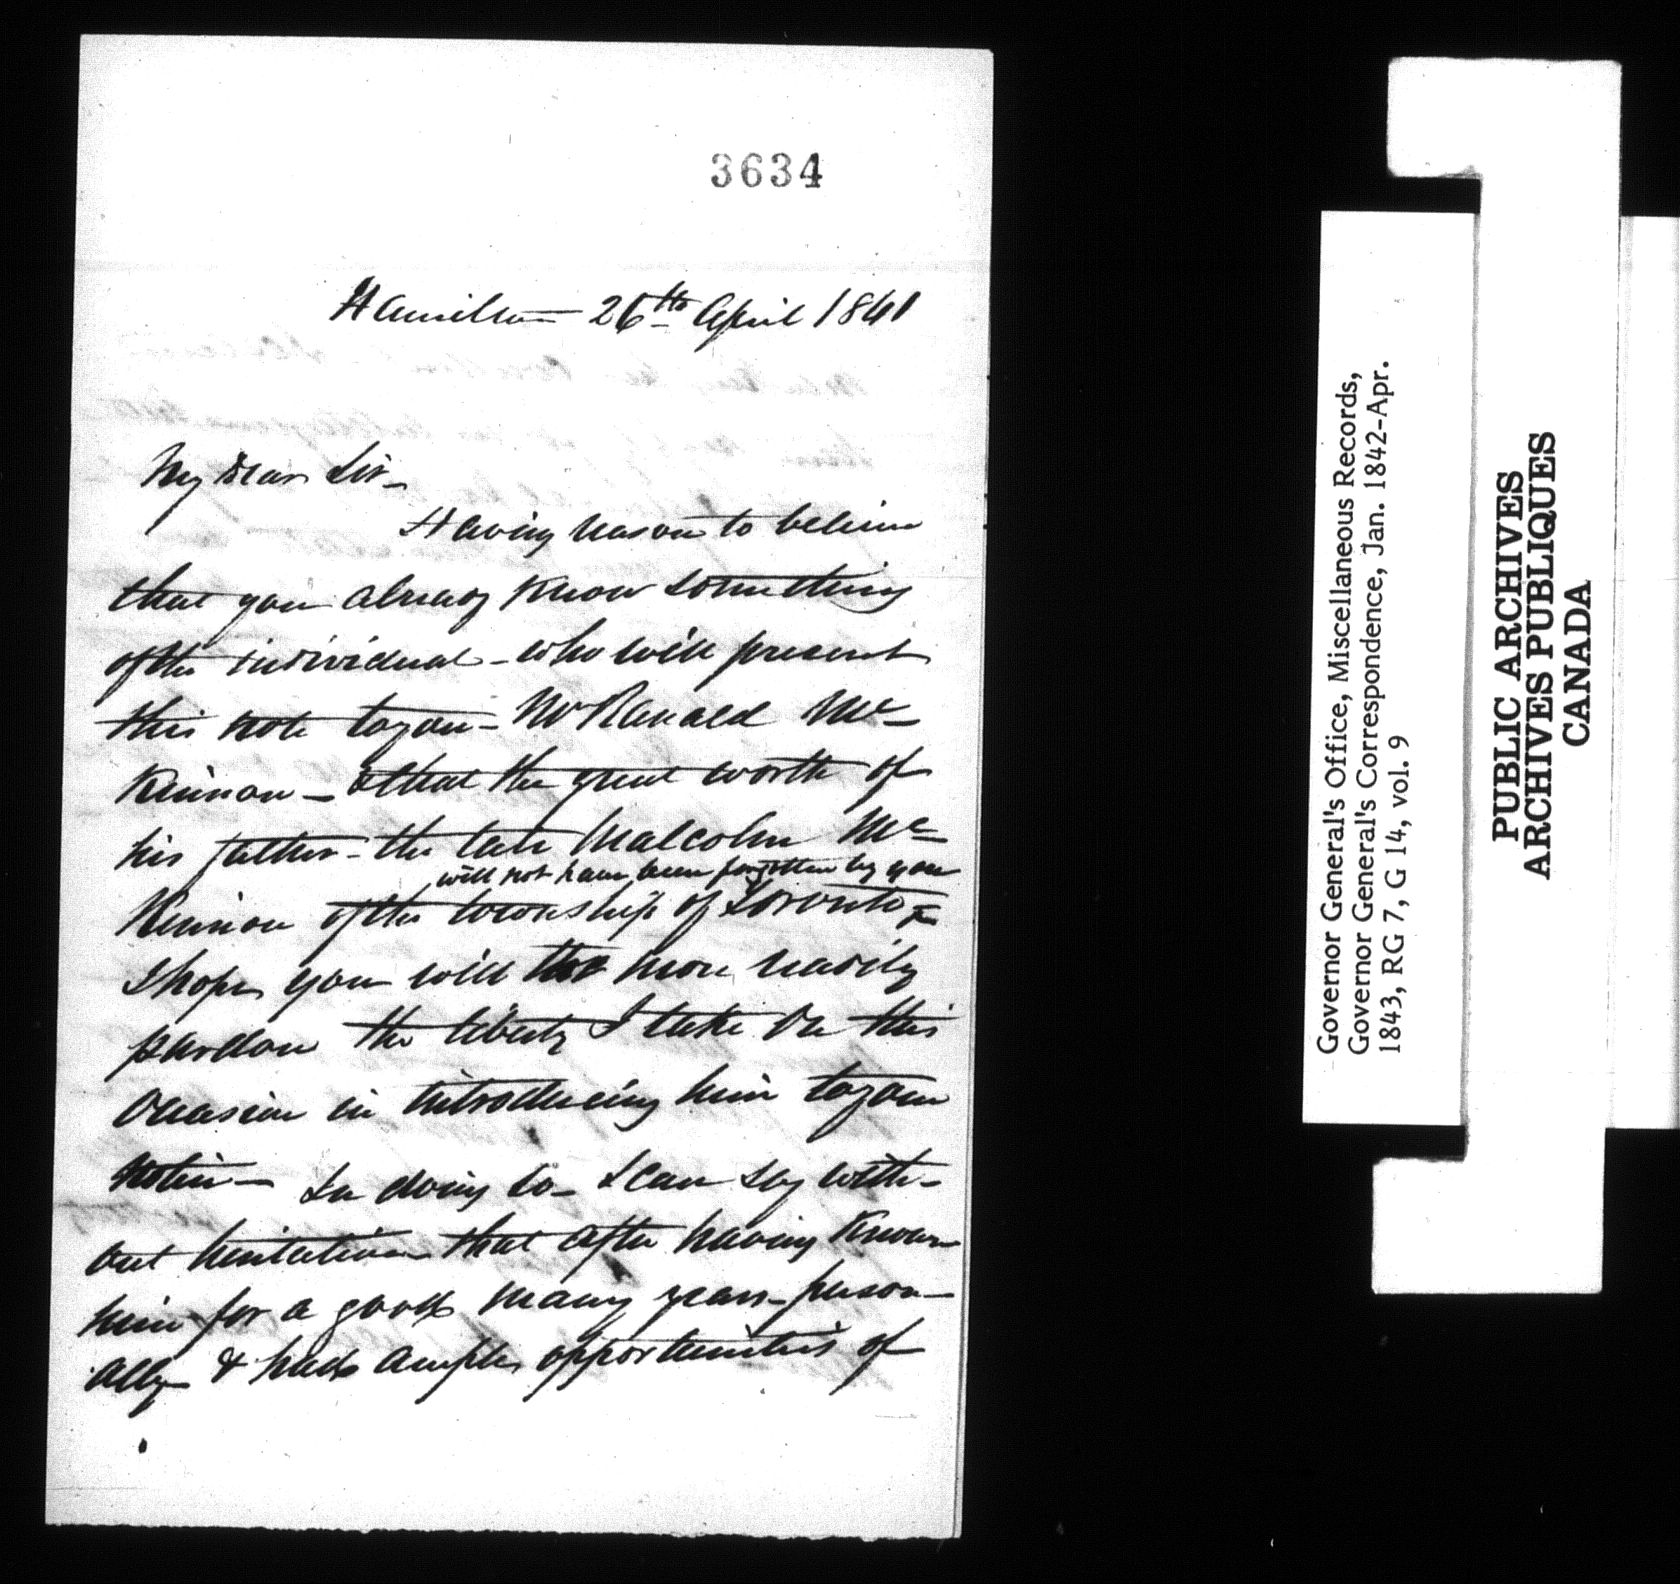 3634
Hamilton 26th April 1841
My Dear Sir -
Having reason to believe
that you already know something
of the individual - who will present
this note to you - Mr Ranald Mc-
Kinnon - & that the great worth of
his father - the late Malcolm Mc=
will not have been forgotten by you
Kinnon of the township of Toronto
I hope you will the more readily
pardon the liberty I take on this
occasion in introducing him to your
notice - In doing so - I can say with-
out hesitation that after having known
him for a good many years - person-
ally & had ample opportunities of
Governor General's Office, Miscellaneous Records,
Governor General's Correspondence, Jan. 1842-Apr.
1843, RG 7, G 14, vol. 9
PUBLIC ARCHIVES
ARCHIVES PUBLIQUES
CANADA